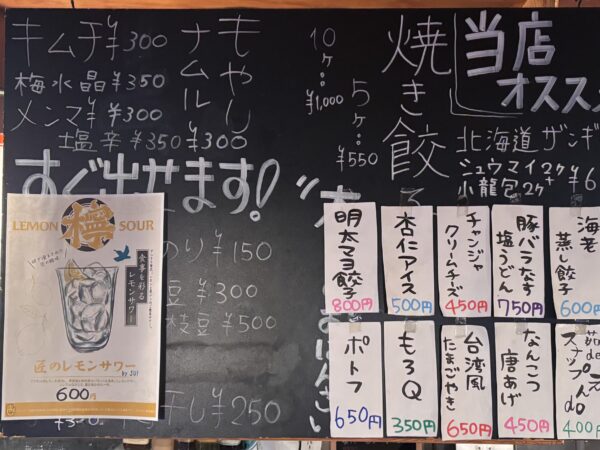 キムチ ¥300
梅水晶 ¥350
メンマ ¥300
塩辛 ¥350
もやし
ナムル
¥300
すぐ出せます!
焼き餃子
10ヶ ¥1,000
5ヶ ¥550
当店
オススメ
北海道ザンギ
シュウマイ2ヶ
小龍包2ヶ
のり ¥150
豆 ¥300
枝豆 ¥500
干し ¥250
LEMON 檸 SOUR
食事を彩る
レモンサワー
匠のレモンサワー
600円
明太マヨ餃子
800円
杏仁アイス
500円
チャンジャ
クリームチーズ
450円
豚バラなす
塩うどん
750円
海老
蒸し餃子
600円
ポトフ
650円
もろQ
350円
台湾風
たまごやき
650円
なんこつ
唐あげ
450円
スナップえんどう
400円